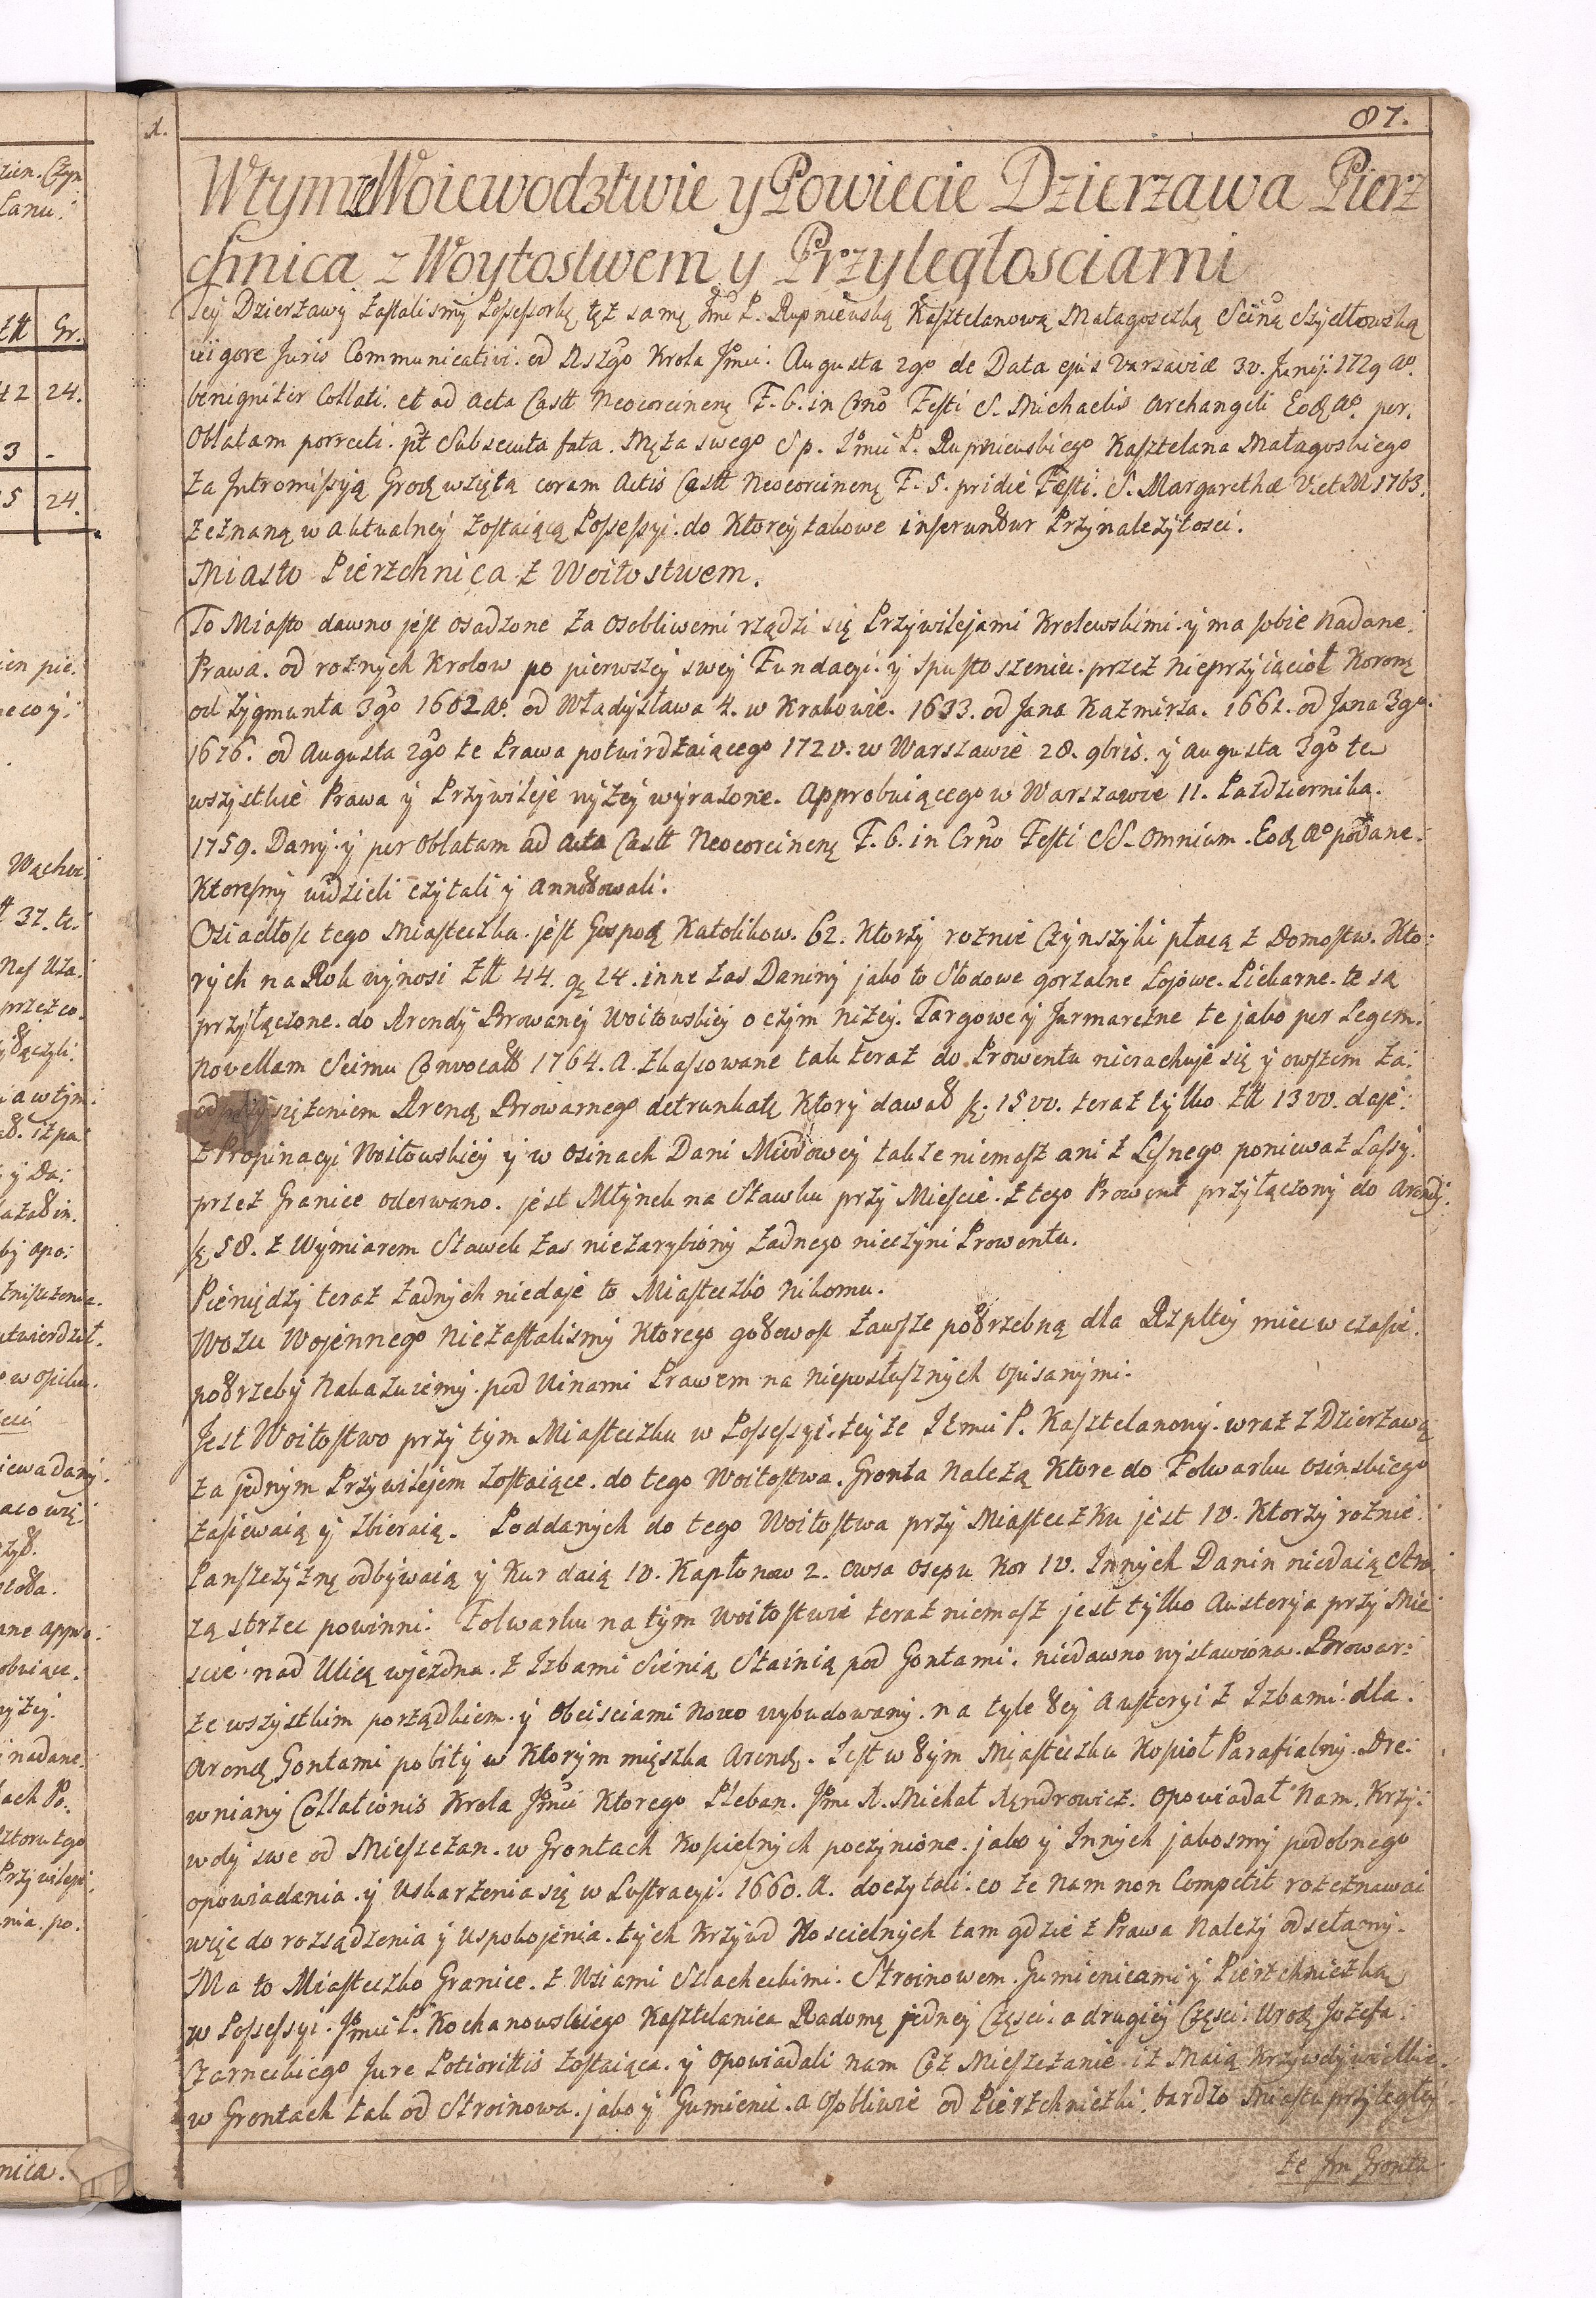 87.
W tymże Woiewodztwie y Powiecie Dzierzawa Pierz
chnica z Woytostwem y Przyległosciami
Tey Dzierżawy zastalismy Possessorkę też samę Jmć P. Rupniewską Kasztelanową Małagoszczką Sciną Szydłowską
vigore Juris Communicativi. od Nszgo Krola Jmci. Augusta 2go de Data ejus Varsaviæ 30. Junij. 1729 Ao.
benigniter Collati. et ad Acta Castt Neocorcinenę F. 6. in Crno Festi S. Michaelis Archangeli Eodę Ao. per.
Oblatam porrecti. pt Subsecuta fata. Męża swego Sp. Jmci P. Rupniewskiego Kasztelana Małagoskiego
za Intromissyą Grodę wziętą coram Actis Castt Neocorcinenę F. 5. pridie Fæsti. S. Margarethæ V. et M 1763.
zeznaną w aktualney zostaiącą Possessyi. do Ktorey takowe inserundur Przynależytosci.
Miasto Pierzchnica z Woitostwem.
To Miasto dawno jest osadzone za osobliwemi rządzi się Przywilejami Krolewskimi. y ma sobie nadane.
Prawa. od rożnych Krolow po pierwszey swey Fundacyi. y spustoszeniu. przez nieprzyiacioł Koronę
od Zygmunta 3go 1602 Ao. od Władysława 4. w Krakowie. 1633. od Jana Kazmirza. 1661. od Jana 3go.
1676. od Augusta 2go te Prawa potwirdzaiącego 1720. w Warszawie 28. 9bris. y Augusta 3go te
wszystkie Prawa y Przywileje wyżey wyrażone. Approbuiącego w Warszawie 11. Pazdziernika.
1759. Dany. y per Oblatam ad Acta Castt Neocorcinenę F. 6. in Crno Festi SS. Omnium. Eodę Ao podane.
Ktoresmy widzieli czytali y annotowali.
Osiadłosc tego Miasteczka. jest Gospodę Katolikow. 62. Ktorzy rożnie Czynszyki płacą z Domostw. Kto:
rych na Rok wynosi Ztt 44. gę 24. inne zas Daniny jako to Słodowe gorzalne Łojowe. Piekarne. te są
przyłączone. do Arendy Browaney Woitowskiey o czym niżey. Targowe y Jarmarczne te jako per Legem.
novellam Seimu Convocatt 1764. A. zkassowane tak teraz do Prowentu nierachuje się y owszem za.
sięzeniem Arendę Browarnego detrunkatę Ktory dawał fę. 1500. teraz tylko Ztt 1300. daje.
z Propinacyi Woitowskiey y w Osinach Dani Miodowey także niemasz ani z Lesnego ponieważ Lassy.
przez Granice oderwano. jest Młynek na Stawku przy Miescie. z tego Prowent przyłączony do Arendy.
fę 58. z Wymiarem Stawek zas niezarybiony żadnego nieczyni Prowentu.
Pieniędzy teraz żadnych niedaje to Miasteczko nikomu.
Wozu Wojennego niezastalismy Ktorego gotowosc zawsze potrzebną dla Rzpltey miec w czasie.
potrzeby nakazuiemy. pod winami Prawem na nieposłusznych opisanymi.
Jest Woitostwo przy tym Miasteczku w Possessyi. teyże Jmci P. Kasztelanowy. wraz z Dzierżawą
za jednym Przywilejem zostaiące. do tego Woitostwa. Gronta należą Ktore do Folwarku Osinskiego
zasiewaią y zbieraią. Poddanych do tego Woitostwa przy Miasteczku jest 10. Ktorzy rożnie.
Panszczyznę odbywaią y Kur daią 10. Kapłonow 2. owsa osepu Kor 10. Innych Danin niedaią Stro
żą strzec powinni. Folwarku na tym Woitostwie teraz niemasz jest tylko Austerya przy Mie
scie. nad Ulicą wjezdna. z Izbami Sienią Stainią pod Gontami. niedawno wystawiona. Browar:
ze wszystkim porządkiem. y Obeisciami nowo wybudowany. na tyle tey Austeryi z Izbami. dla.
Arendę Gontami pobity w Ktorym mięszka Arendę. Jest w tym Miasteczku Kosioł Parafialny. Dre:
wniany Collationis Krola Jmci Ktorego Pleban. Jmć X. Michał Nędrowicz. Opowiadał Nam. Krzy:
wdy swe od Mieszczan. w Grontach Koscielnych poczynione. jako y Innych jakosmy podobnego
opowiadania. y uskarżenia się w Lustracyi. 1660. A. doczytali. co że nam non Competit rozeznawać
więc do rozsądzenia y uspokojenia. tych Krzywd Koscielnych tam gdzie z Prawa należy odsełamy.
Ma to Miasteczko Granice. z Wsiami Szlacheckimi. Stroinowem. Gumienicami y Pierzchniczką
w Possessyi. Jmci P. Kochanowskiego Kasztelanica Radomę jedney Częsci. a drugiey Częsci. Urodę Jozefa.
Czarneckiego Jure Potioritis zostaiąca. y Opowiadali nam Ciż Mieszczanie. iż Maią Krzywdy wielkie.
w Grontach tak od Stroinowa. jako y Gumienic. a osobliwie od Pierzchniczki. bardzo Miastu przyległy
że Im Gronta